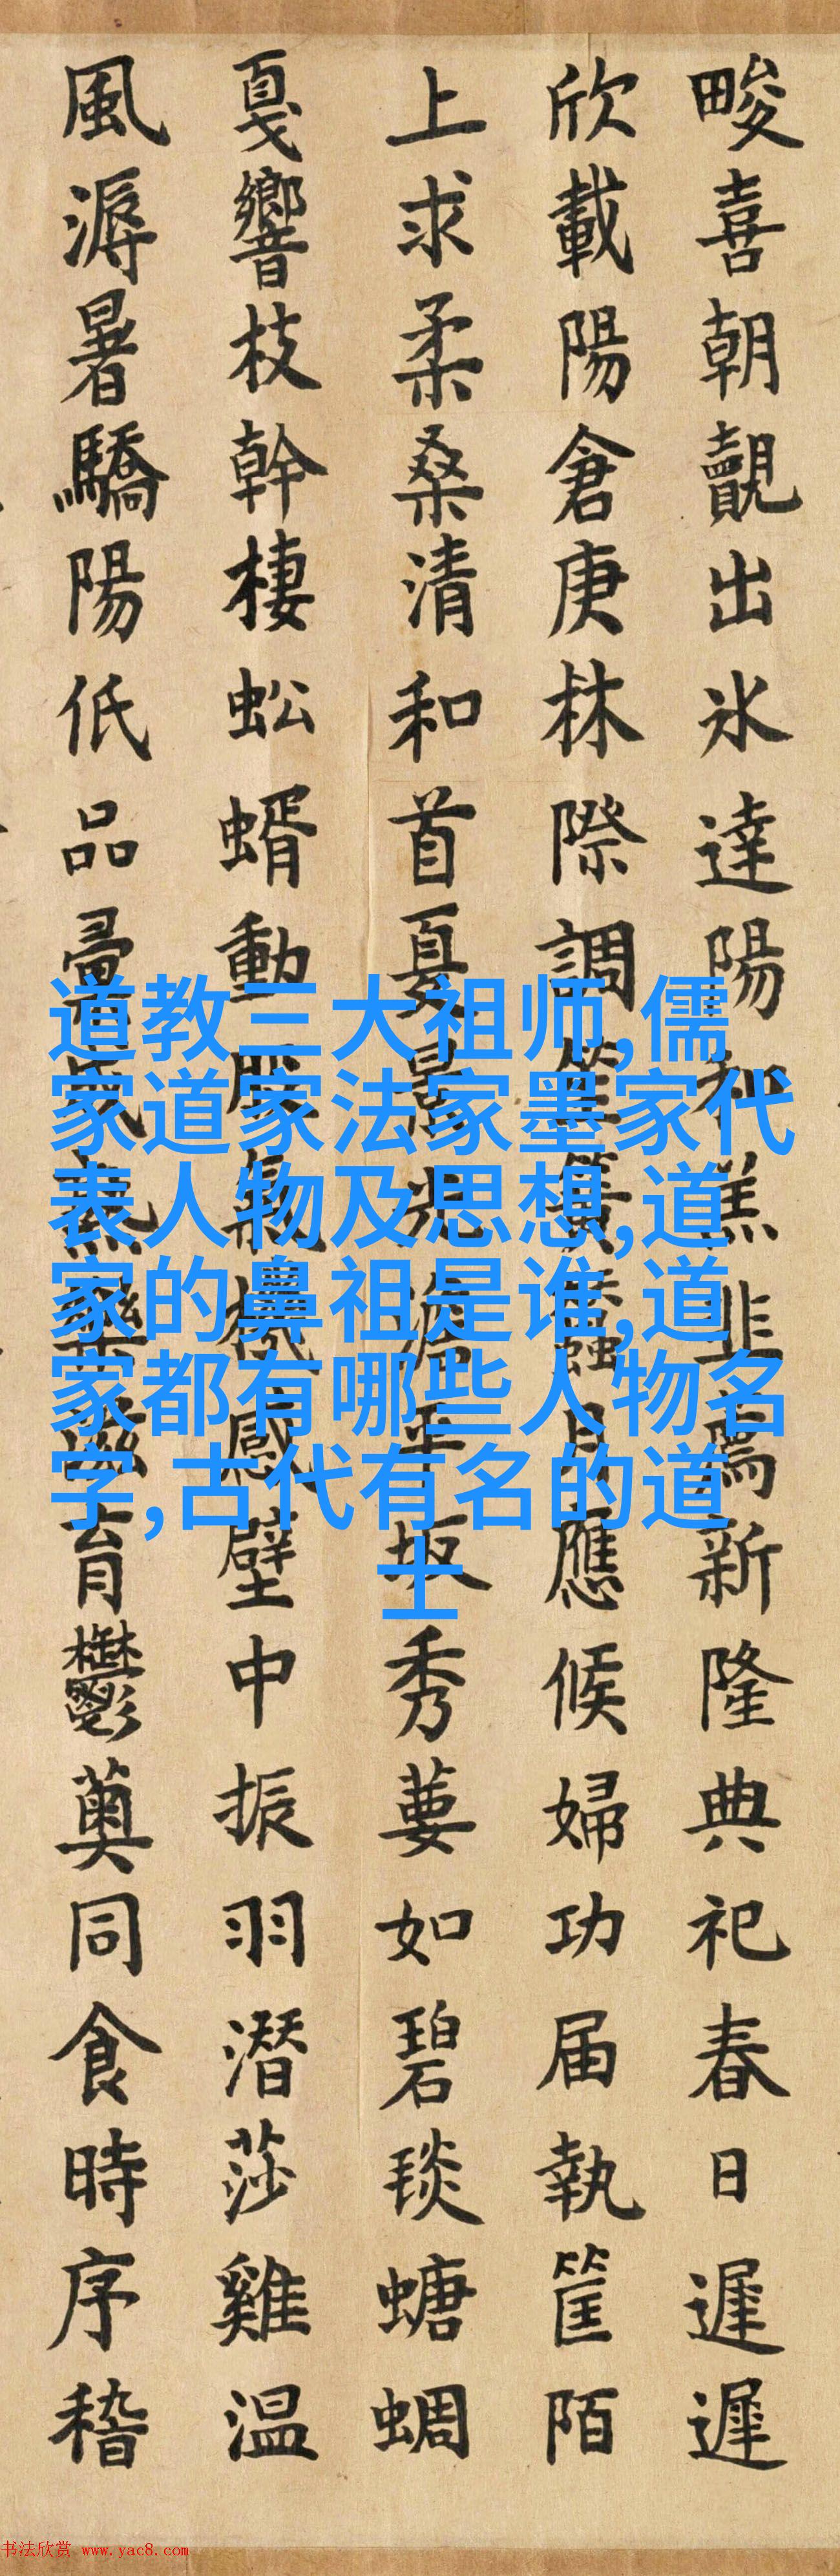 畯喜朝覿出氷達陽和羔韭薦新隆典祀春日遲遲
欣載陽倉庚林際調笙簧蠶月應候婦功届執筐陌
上求柔桑清和首夏景光澹平坂秀葽如碧琰螗蜩
戛響枝幹棲蚣蝑動股氣機感壁中振羽潛莎雞温
風溽暑驕陽低品彙滋育鬱薁同食時序稽
道教三大祖师,儒
家道家法家墨家代
表人物及思想,道
家的鼻祖是谁,道
家都有哪些人物名
字,古代有名的道
士
书法欣赏 www.yac8.com